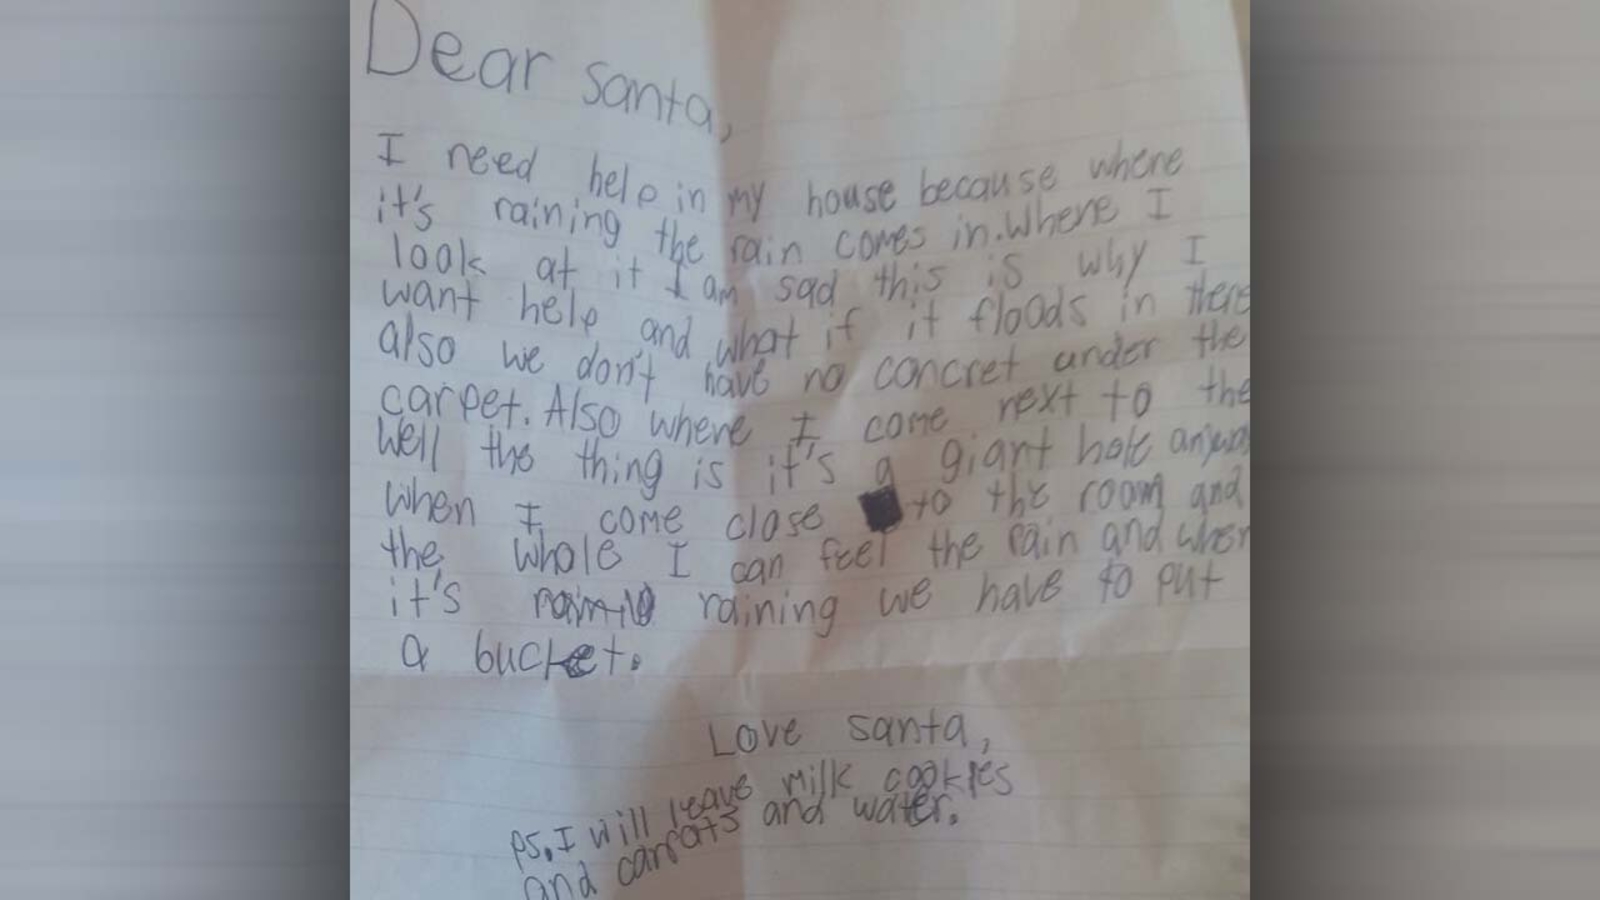 Dear Santa,
I need help in my house because where
it's raining the rain comes in. Where I
look at it I am sad this is why I
want help and what if it floods in there
also we don't have no concret under the
carpet. Also where I come next to the
Well the thing is it's a giant hole
when I come close to the room and
the whole I can feel the rain and when
it's raining we have to put
a bucket.
Love Santa,
Ps. I will leave milk cookies
and carrots and water.